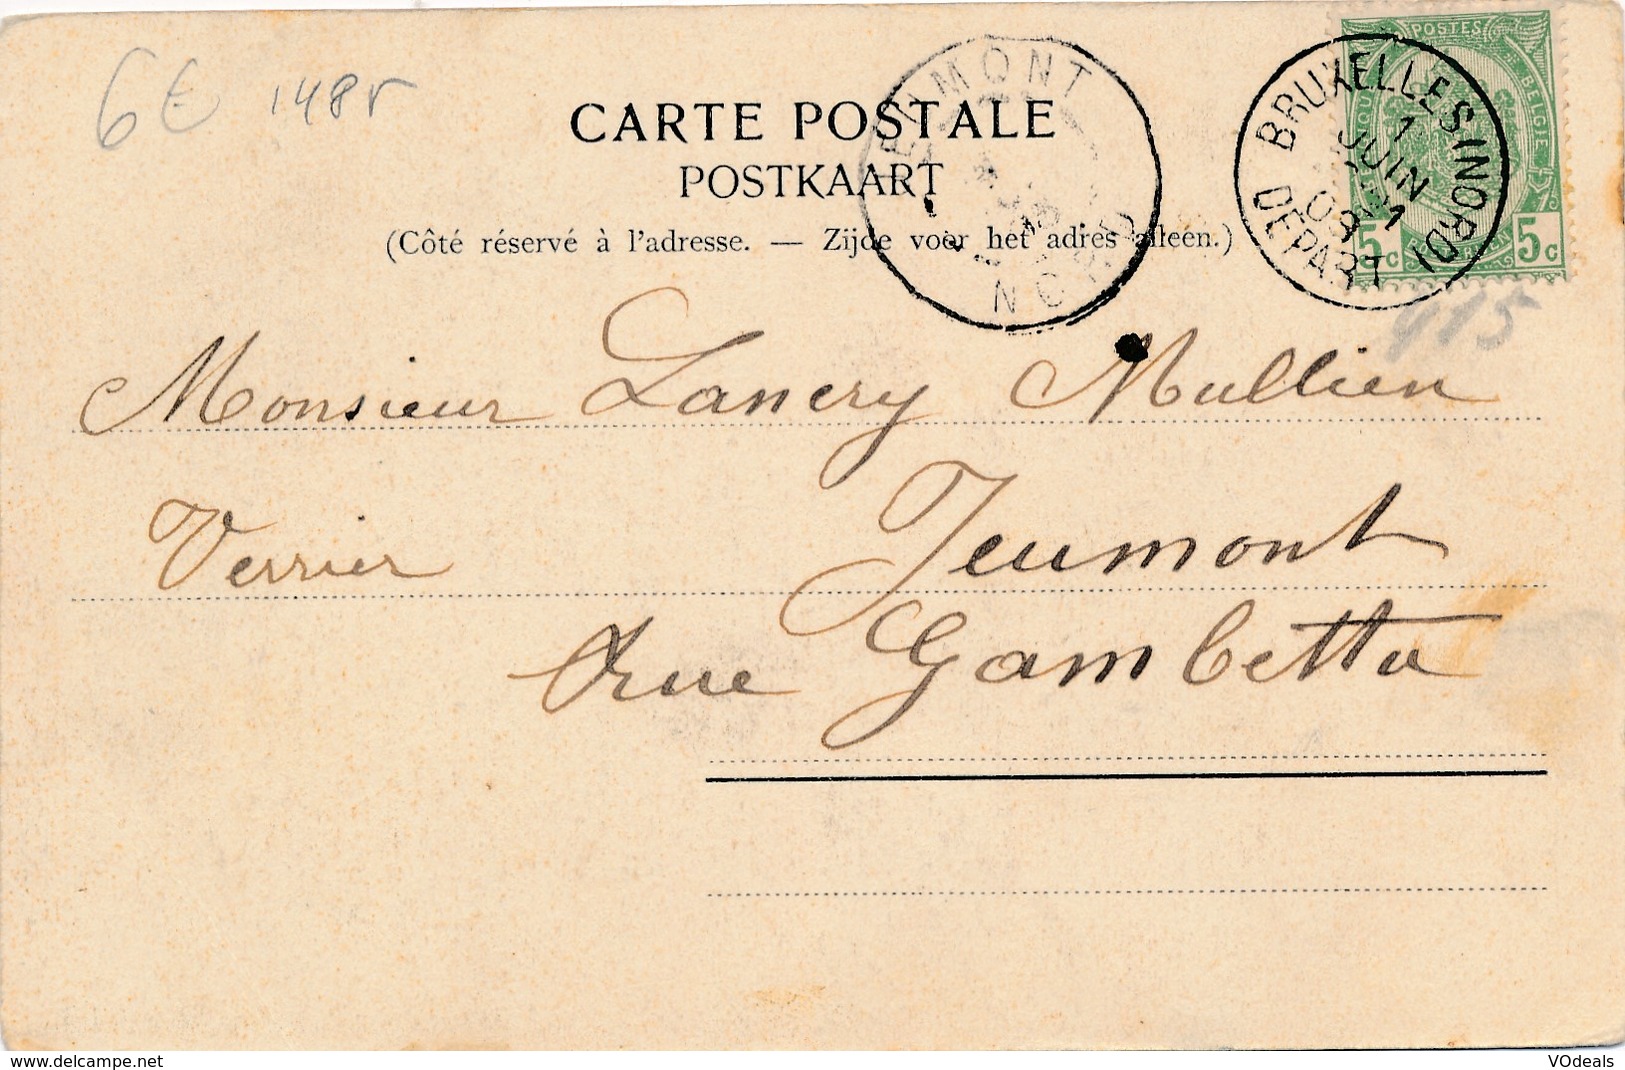 6€ 148r
CARTE POSTALE
POSTKAART
(Côté réservé à l'adresse. — Zijde voor het adres alleen.)
JEUMONT
NORD
BRUXELLES (NORD)
1
JUIN
DEPART
POSTES
5c 5c
415
Monsieur Lancry Mullien
Verrier Jeumont
Rue Gambetta
www.delcampe.net
VOdeals